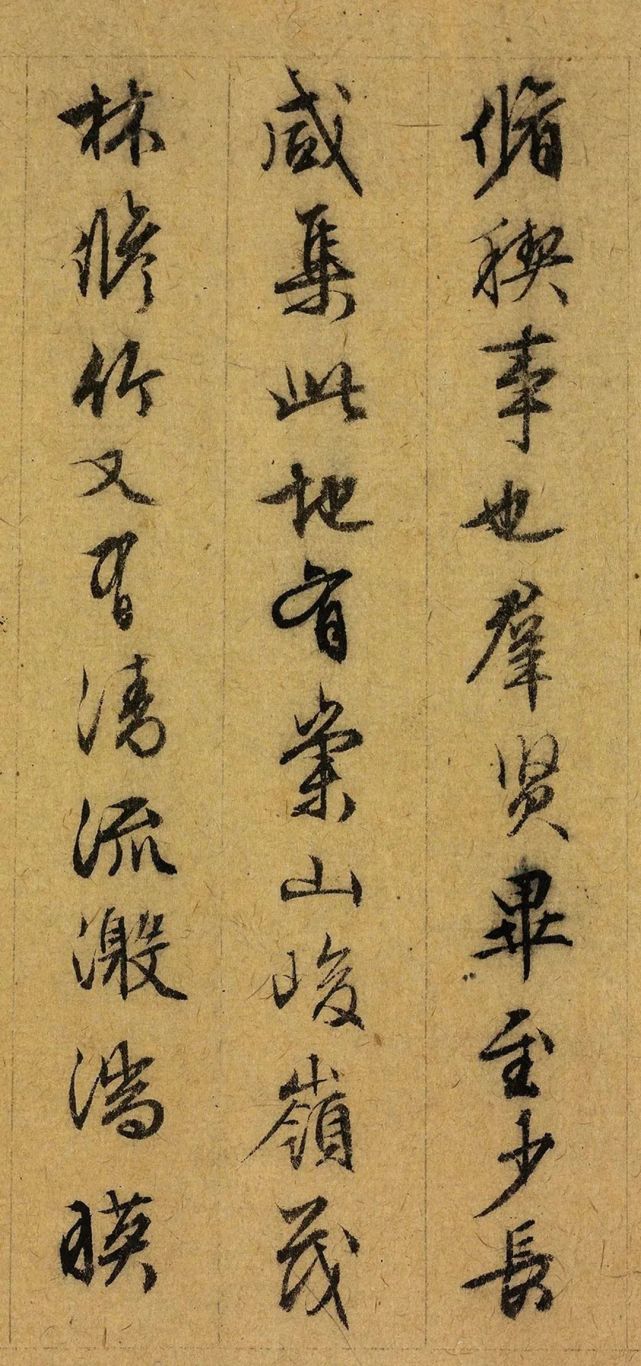 脩稧事也羣賢畢至少長
咸集此地有崇山峻嶺茂
林修竹又有清流激湍暎